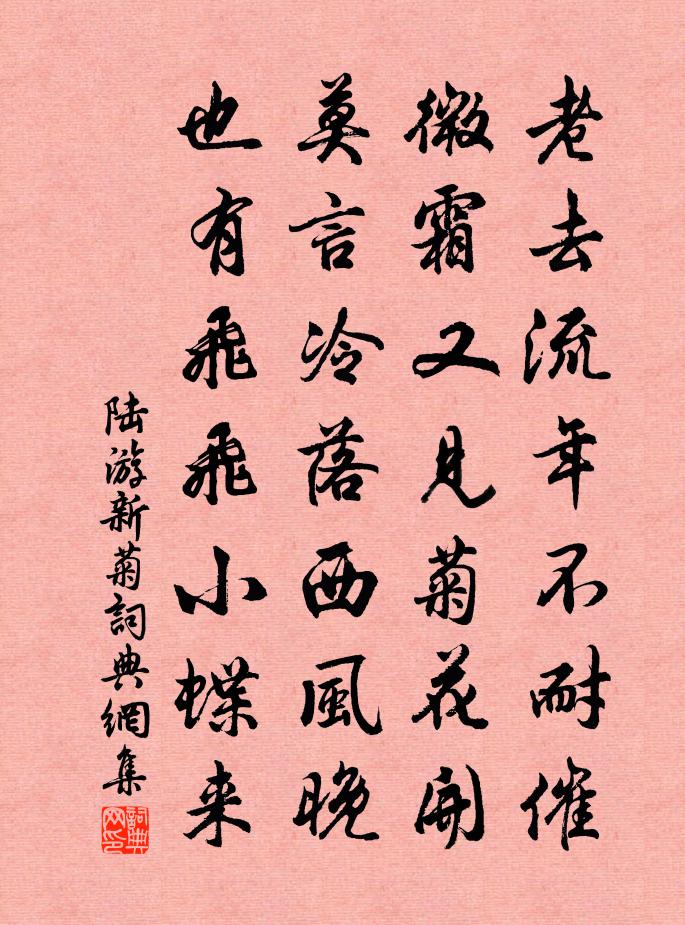 老去流年不耐催
微霜又見菊花開
莫言冷落西風晚
也有飛飛小蝶来
陆游新菊詞典網集
詞典网印